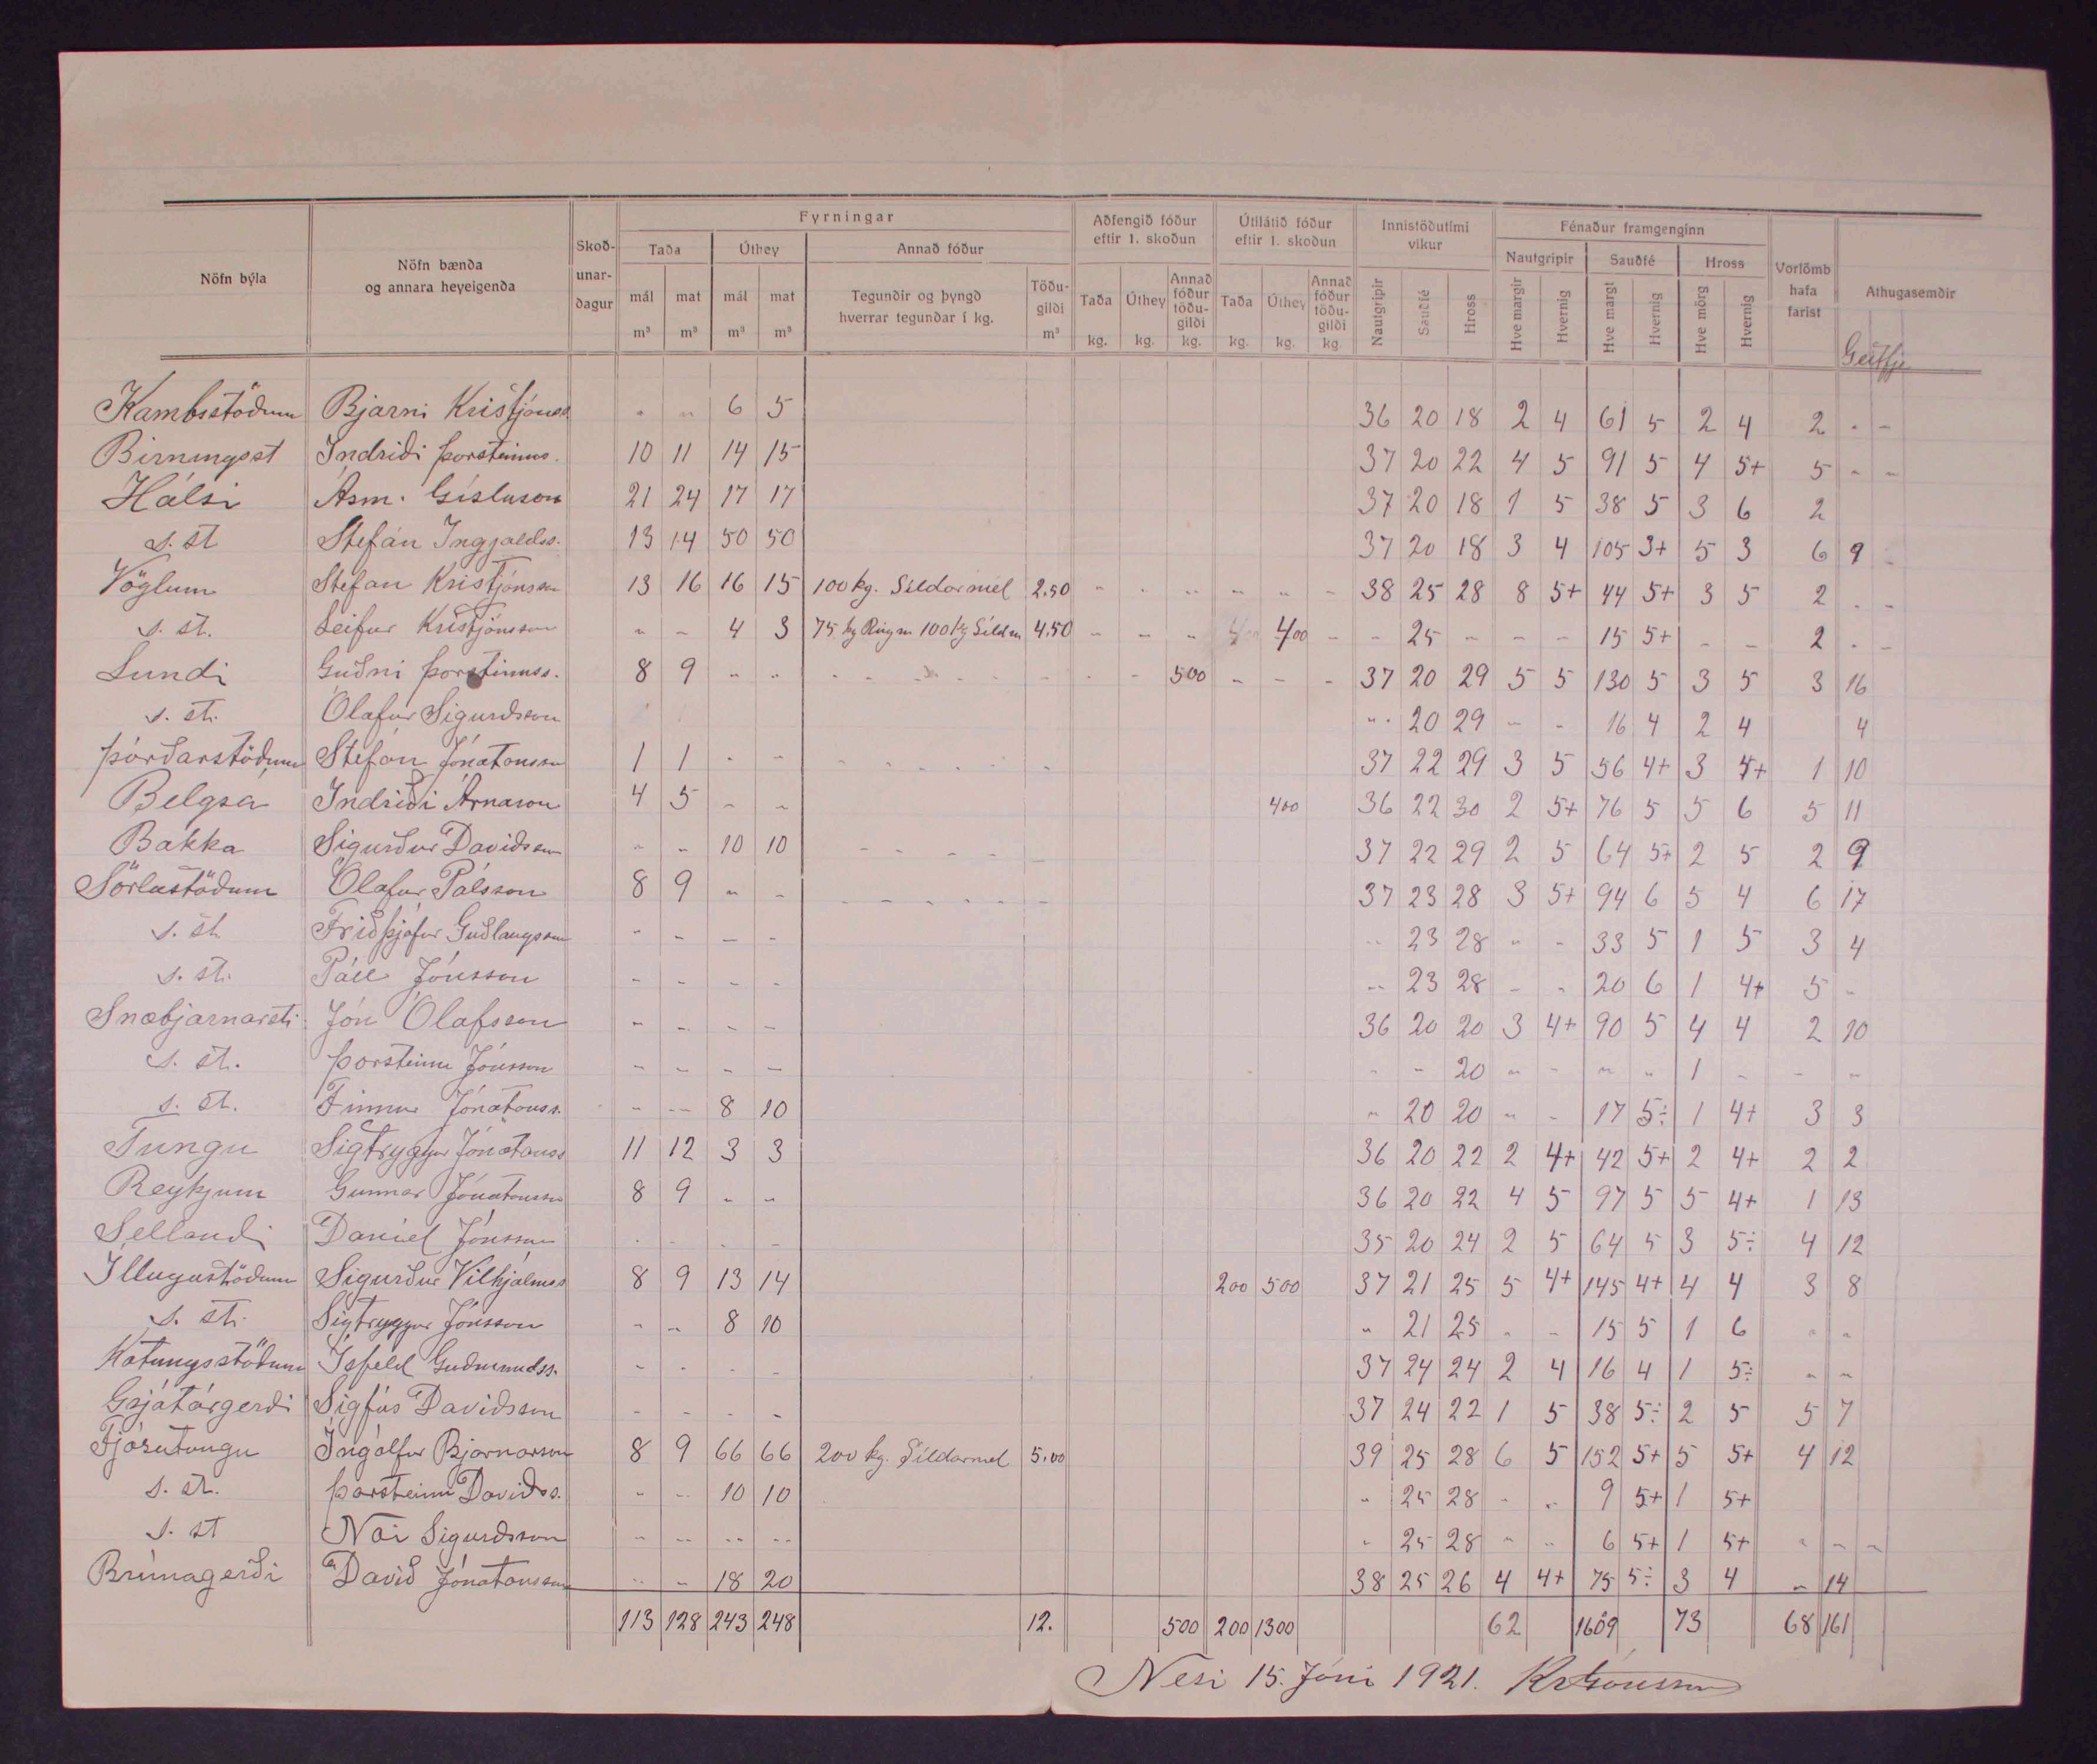 Nöfn býla | Nöfn bænda og annara heyeigenda | Skoðunardagur | Fyrningar | Aðfengið fóður eftir 1. skoðun | Útilátið fóður eftir 1. skoðun | Innistöðutími vikur | Fénaður framgenginn | Vorlömb hafa farist | Athugasemdir
Taða | Úthey | Annað fóður | Nautgripir | Sauðfé | Hross
mál m³ | mat m³ | mál m³ | mat m³ | Tegundir og þyngd hverrar tegundar í kg. | Töðugildi m³ | Taða kg. | Úthey kg. | Annað fóður töðugildi kg. | Taða kg. | Úthey kg. | Annað fóður töðugildi kg. | Nautgripir | Sauðfé | Hross | Hve margir | Hvernig | Hve margt | Hvernig | Hve mörg | Hvernig | Geitfje
Kambsstöðum Bjarni Kristjánss. - - 6 5 36 20 18 2 4 61 5 2 4 2 - -
Birningsst Indriði Þorsteinss. 10 11 14 15 37 20 22 4 5 91 5 4 5+ 5 - -
Hálsi Ásm. Gíslason 21 24 17 17 37 20 18 1 5 38 5 3 6 2
s. st Stefán Ingjaldss. 13 14 50 50 37 20 18 3 4 105 3+ 5 3 6 9 -
Vöglum Stefán Kristjánsson 13 16 16 15 100 kg. Síldarmél 2.50 - - - - - - 38 25 28 8 5+ 44 5+ 3 5 2 - -
s. st. Leifur Kristjánsson - - 4 3 75 kg Rúgm 100 kg Síldm 4.50 - - - 400 - - 25 - - - 15 5+ - - 2 - -
Lundi Guðni Þorsteinss. 8 9 - - - - - - - - - - 500 - - - 37 20 29 5 5 130 5 3 5 3 16
s. st. Ólafur Sigurdsson - 20 29 - - 16 4 2 4 4
Þórðarstöðum Stefán Jónatansson 1 1 - - - - - - - - 37 22 29 3 5 56 4+ 3 4+ 1 10
Belgsa Indriði Árnason 4 5 - - 400 36 22 30 2 5+ 76 5 5 6 5 11
Bakka Sigurður Davidsson - - 10 10 - - - - - 37 22 29 2 5 64 5+ 2 5 2 9
Sörlastöðum Ólafur Pálsson 8 9 - - - - - - - - - 37 23 28 3 5+ 94 6 5 4 6 17
s. st Friðþjófur Guðlaugsson - - - - - 23 28 - - 33 5 1 5 3 4
s. st. Páll Jónsson - - - - - 23 28 - - 20 6 1 4+ 5 -
Snæbjarnarst. Jón Ólafsson - - - - 36 20 20 3 4+ 90 5 4 4 2 10
s. st. Þorsteinn Jónsson - - - - - - 20 - - - - 1 - - -
s. st. Finnur Jónatanss. - - 8 10 - 20 20 - - 17 5÷ 1 4+ 3 3
Tungu Sigtryggur Jónatanss 11 12 3 3 36 20 22 2 4+ 42 5+ 2 4+ 2 2
Reykjum Gunnar Jónatansson 8 9 - - 36 20 22 4 5 97 5 5 4+ 1 13
Sellandi Daníel Jónsson - - - - 35 20 24 2 5 64 5 3 5÷ 4 12
Illugastöðum Sigurður Vilhjálmss 8 9 13 14 200 500 37 21 25 5 4+ 145 4+ 4 4 3 8
s. st. Sigtryggur Jónsson - - 8 10 - 21 25 - - 15 5 1 6 - -
Kotungsstöðum Ísfeld Guðmundss. - - - - 37 24 24 2 4 16 4 1 5÷ - -
Grjótárgerði Sigfús Davidsson - - - - 37 24 22 1 5 38 5÷ 2 5 5 7
Fjósatungu Ingólfur Bjarnarson 8 9 66 66 200 kg. Síldarmel 5.00 39 25 28 6 5 152 5+ 5 5+ 4 12
s. st. Þorsteinn Davíðss. - - 10 10 - 25 28 - - 9 5+ 1 5+
s. st Nói Sigurdsson - - - - - 25 28 - - 6 5+ 1 5+ - - -
Brúnagerði Davíð Jónatansson - - 18 20 38 25 26 4 4+ 75 5÷ 3 4 - 14
113 128 243 248 12. 500 200 1300 62 1609 73 68 161
Nesi 15. Júní 1921. KrJónsson